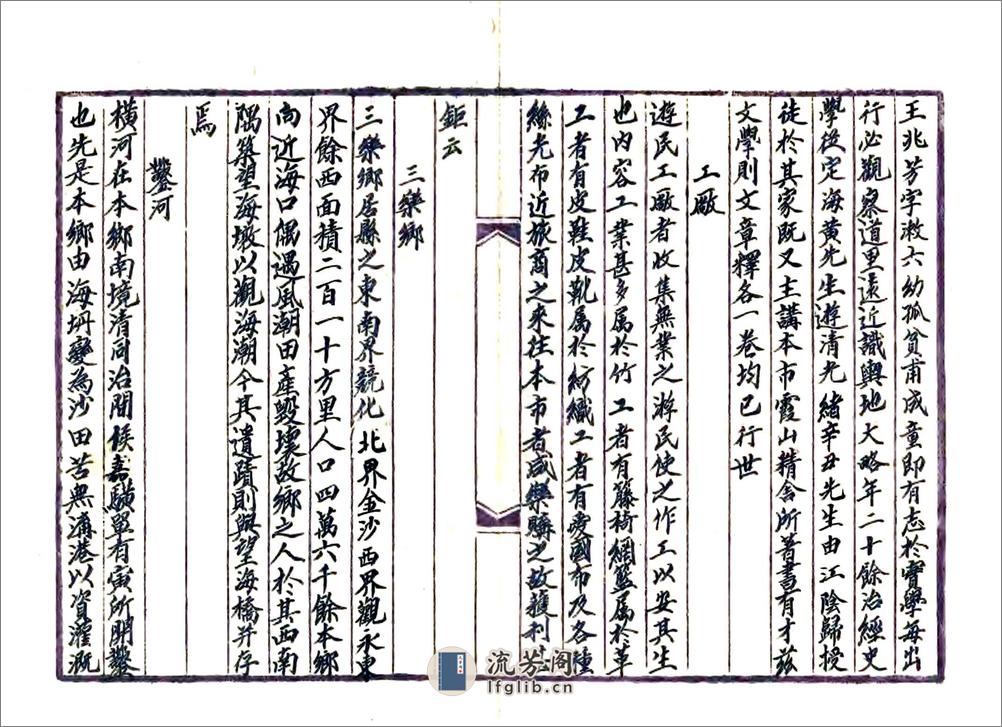 王兆芳字漱六幼孤貧甫成童即有志於實學每出
行必觀察道里遠近識輿地大略年二十餘治經史
學從定海黃先生遊清光緒辛丑先生由江陰歸授
徒於其家既又主講本市霞山精舍所著書有才茲
文學則文章釋各一卷均已行世
工廠
遊民工廠者收集無業之游民使之作工以安其生
也內容工業甚多属於竹工者有籐椅網籃属於革
工者有皮鞋皮靴属於紡織工者有愛國布及各種
絲光布近旅商之來往本市者咸樂購之故獲利
鉅云
三樂鄉
三樂鄉居縣之東南界競化北界金沙西界觀永東
界餘西面積二百一十方里人口四萬六千餘本鄉
向近海口偶遇風潮田產毀壞故鄉之人於其西南
隅築望海墩以觀海潮今其遺蹟則與望海橋并存
焉
鑿河
橫河在本鄉南境清同治間候嘉驥單有寅所開鑿
也先是本鄉由海坍變為沙田苦無浦港以資灌溉
流芳阁
lfglib.cn